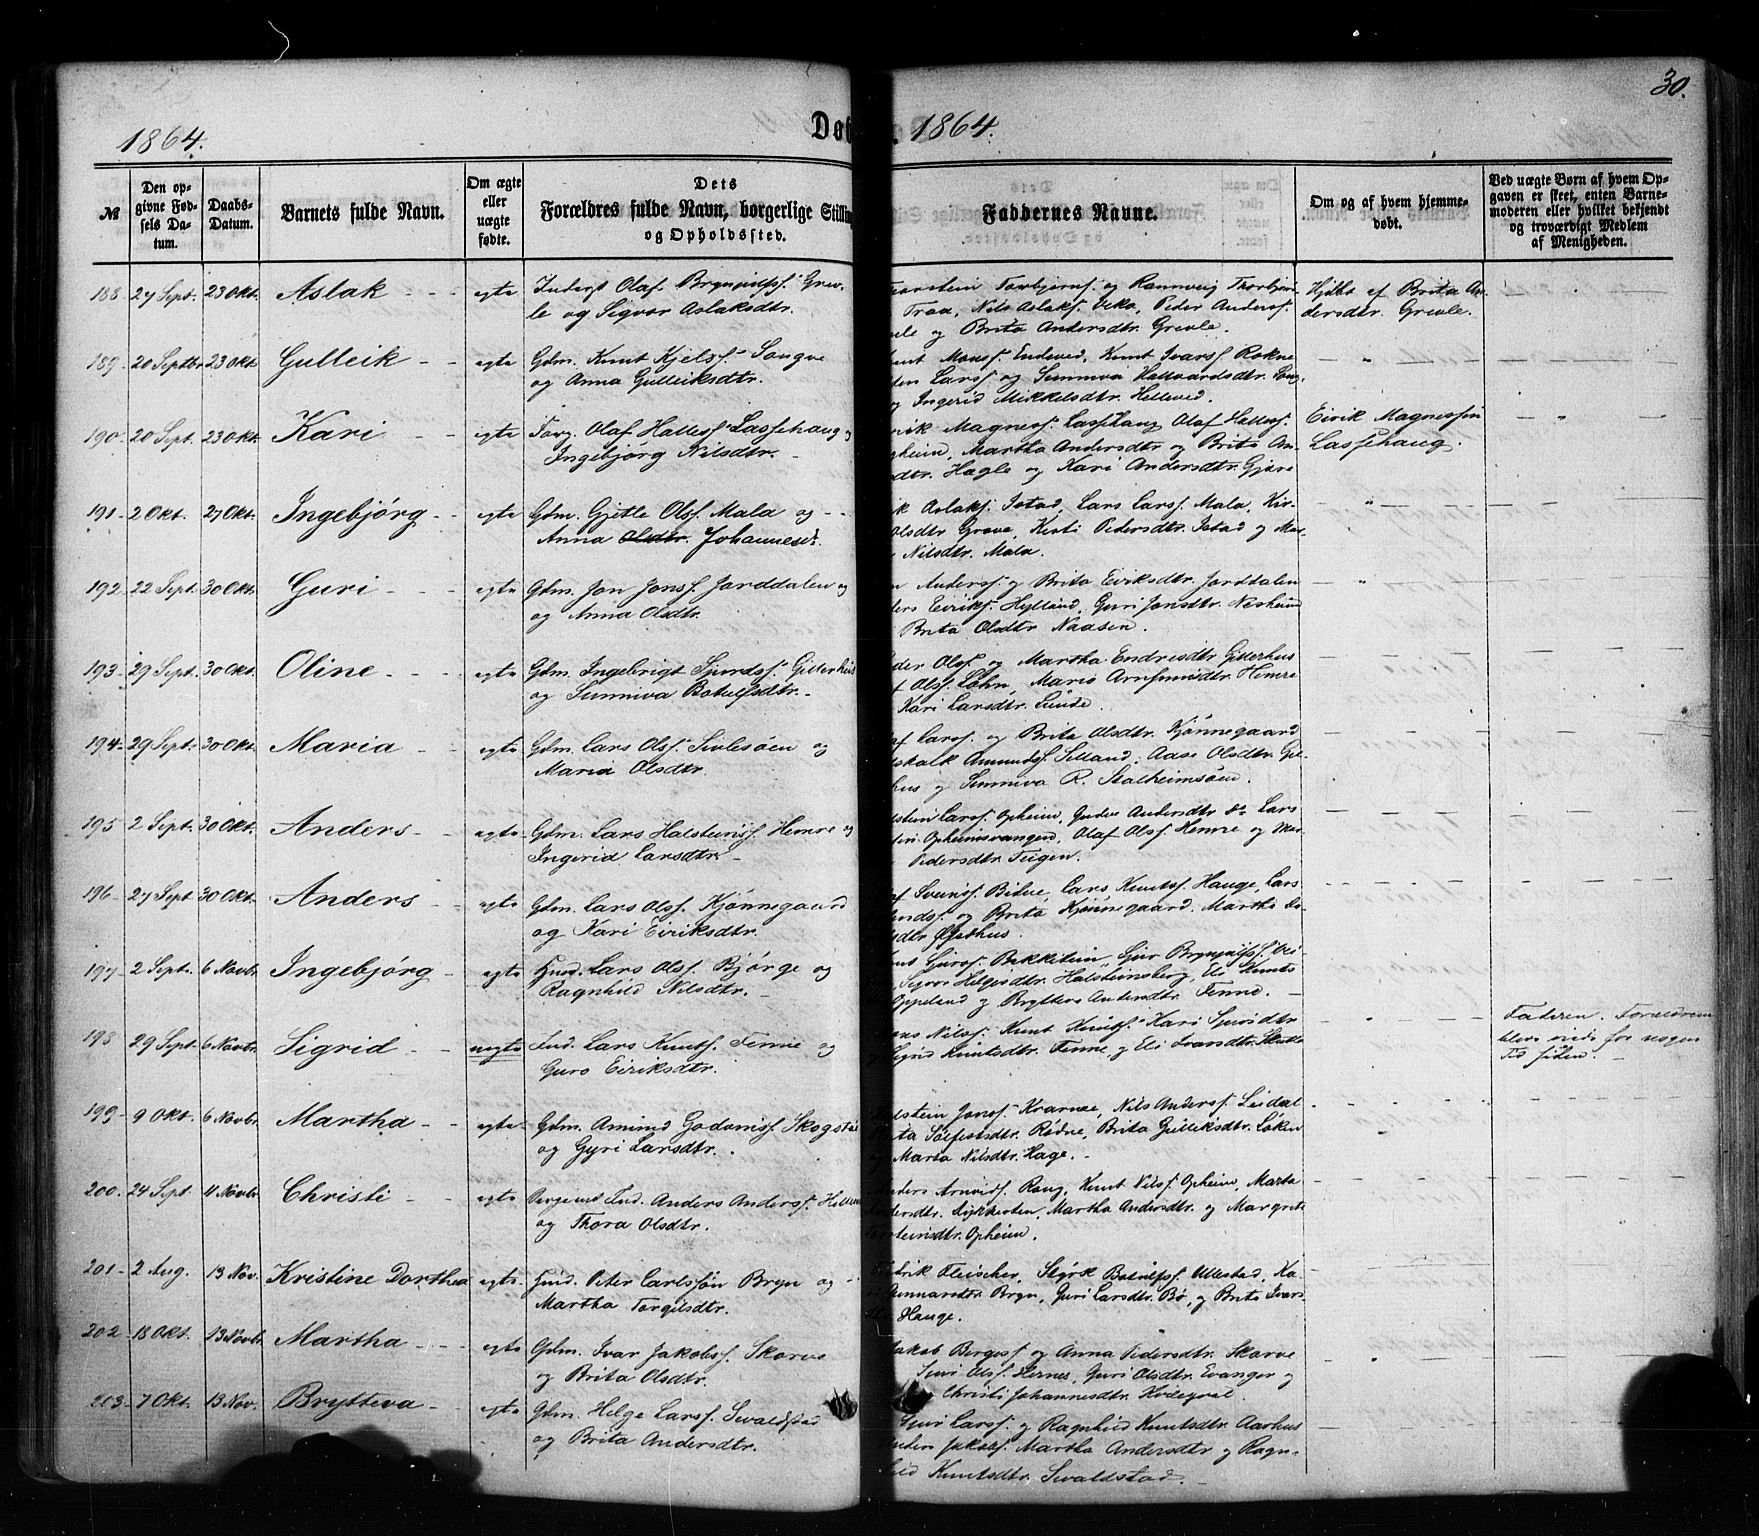 30.
1864.
Døb
1864.
№
Den op-
givne Fød-
sels Da-
tum.
Daabs-
Datum.
Barnets fulde Navn.
Om ægte
eller
uægte
fødte.
Dets
Forældres fulde Navn, borgerlige Stillin
og Opholdssted.
Faddernes Navne.
Om og af hvem hjemme-
døbt.
Ved uægte Børn af hvem Op-
gaven er skeet, enten Barne-
moderen eller hvilket bekjendt
og troværdigt Medlem
af Menigheden.
188. 27 Sept. 23 Okt. Aslak - - egte Inderst Olaf Brynjulfs. Grev-
le og Sigvor Aslaksdtr.
Torstein Torbjørns. og Rannveig Thorbjørn
Traa, Nils Aslaks. Veka, Peder Anders.
vele og Brita Andersdtr. Grevle.
Hjdbt af Brita An-
dersdtr. Grevle.
189. 20 Septbr 23 Okt. Gulleik - - egte Gdm. Knut Kjels. Songve
og Anna Gulleiksdtr.
nut Mons. Endeved, Knut Ivars. Rokne
den Lars. og Sunniva Hallvardsdtr. Song-
og Ingerid Mikkelsdtr. Helleved.
190. 20 Sept. 23 Okt. Kari - - egte Forp. Olaf Halles. Lassehaug og
Ingebjørg Nilsdtr. -
rik Magnes. Lassehaug Olaf Halles.
gheim, Martha Andersdtr og Brita An-
dtr. Hagle og Kari Andersdtr. Gjære
Eirik Magnessøn
Lassehaug.
191. 2 Okt. 27 Okt. Ingebjørg - egte Gdm. Gjetle Ols. Mala og - -
Anna Olsdtr. Johannesdr.
ik Aslaks. Istad, Lars Lars. Mala, Kir-
Olsdtr Grove, Kirsti Pedersdtr. Istad og Mar-
Nilsdtr. Mala.
192. 22 Sept. 30 Okt. Guri - - egte Gdm. Jon Jons. Jorddalen og
og Anna Olsdtr.
n Anders. og Brita Eiriksdtr. Jordalen
ders Eiriks. Hylland, Guri Jonsdtr. Nesheim
Brita Olsdtr Naasen.
193. 29 Sept. 30 Okt. Oline - - egte Gdm. Ingebrigt Sjurds. Gjelerhus
og Sunniva Botulfsdtr. -
eder Ols. og Martha Endresdtr Gjelerhus
f Ols. Løhn, Maria Arnfinnsdtr. Himre
Kari Larsdtr. Tunde.
194. 29 Sept. 30 Okt. Maria - egte Gdm. Lars Ols. Sivlesøen og
Maria Olsdtr.
af Lars. og Brita Olsdtr. Kjønnegaard
dskalk Amunds. Selland, Aase Olsdtr. Gil-
hus og Sunniva R. Stalheimsøen.
195 2 Sept. 30 Okt. Anders - egte Gdm. Lars Halsteins. Hemre og
Ingerid Larsdtr. -
lstein Lars. Opheim, Gudve Andersdtr do Lars
Opheimsvangen, Olaf Ols. Hemre og Mar
Pedersdtr Teigen.
196 27 Sept 30 Okt. Anders - egte Gdm. Lars Ols. Kjønnegaard
og Kari Eiriksdtr.
af Sveins. Bidne, Lars Knuts. Hauge, Lars
ends. og Brita Kjønnegaard. Martha
sdtr Øfsthus.
197 2 Sept. 6 Novb. Ingebjørg - egte Husd. Lars Ols. Bjørge og
Ragnhild Nilsdtr. -
Gjurs. Bakketein, Gjur Brynjulfs.
Sigvor Helgesdtr. Halsteinsberg, Eli Knuts
Oppeland og Brytteva Andersdtr Temre. -
198 29 Sept. 6 Novbr. Sigrid - - uegte Ind. Lars Knuts. Temre og
Guro Eiriksdtr.
ns Nils. Knut Knuts. Kari Sjursdtr
Sigrid Knutsdtr. Temre og Eli Ivarsdtr.
Faderen. Forældrene
blev viede for nogen
Tid siden. -
199 9 Okt. 6 Novbr. Martha - egte Gdm. Amund Godvins. Skogstad
og Gyri Larsdtr.
lstein Jons. Kvarme, Nils Anders. Leidal
Brita Sølfestsdtr. Rødne, Brita Gulleiksdtr. Løken
og Marta Nilsdtr. Hage. -
200. 24 Sept. 11 Novbr. Christi - egte Ind. Anders Anders. Hellem
og Thora Olsdtr.
Anders Arnvids. Rong, Knut Nils. Opheim, Marta
Andersdtr. Lykkesten, Martha Andersdtr. og Margreta
Torsteinsdtr. Opheim.
201 - 2 Aug. 13 Nov. Kristine Dorthea egte Husd. Peter Carlssøn Bryn og -
Martha Torgilsdtr.
Fredrik Fleischer, Styrk Botulfs. Ullestad, Ka-
Gunnarsdtr Bryn, Guri Larsdtr. Bø, og Brita Ivars-
dtr. Hauge.
202 - 18 Okt. 13 Novbr. Martha - - egte Gdm. Ivar Jakobs. Skorve
og Brita Olsdtr.
Jakob Berges. og Anna Pedersdtr. Skorve
Sjur Ols. Hernes, Guri Olsdtr. Evanger og
Christi Johannesdtr. Hodegval.
203 - 7 Okt. 13 Nov. Brytteva - egte Gdm. Helge Lars. Sevaldstad
og Brita Andersdtr.
Sjur Lars. og Ragnhild Knutsdtr. Aarhus
Anders Jakobs. Martha Andersdtr og Ragn-
hild Knutsdtr. Sevaldstad. -